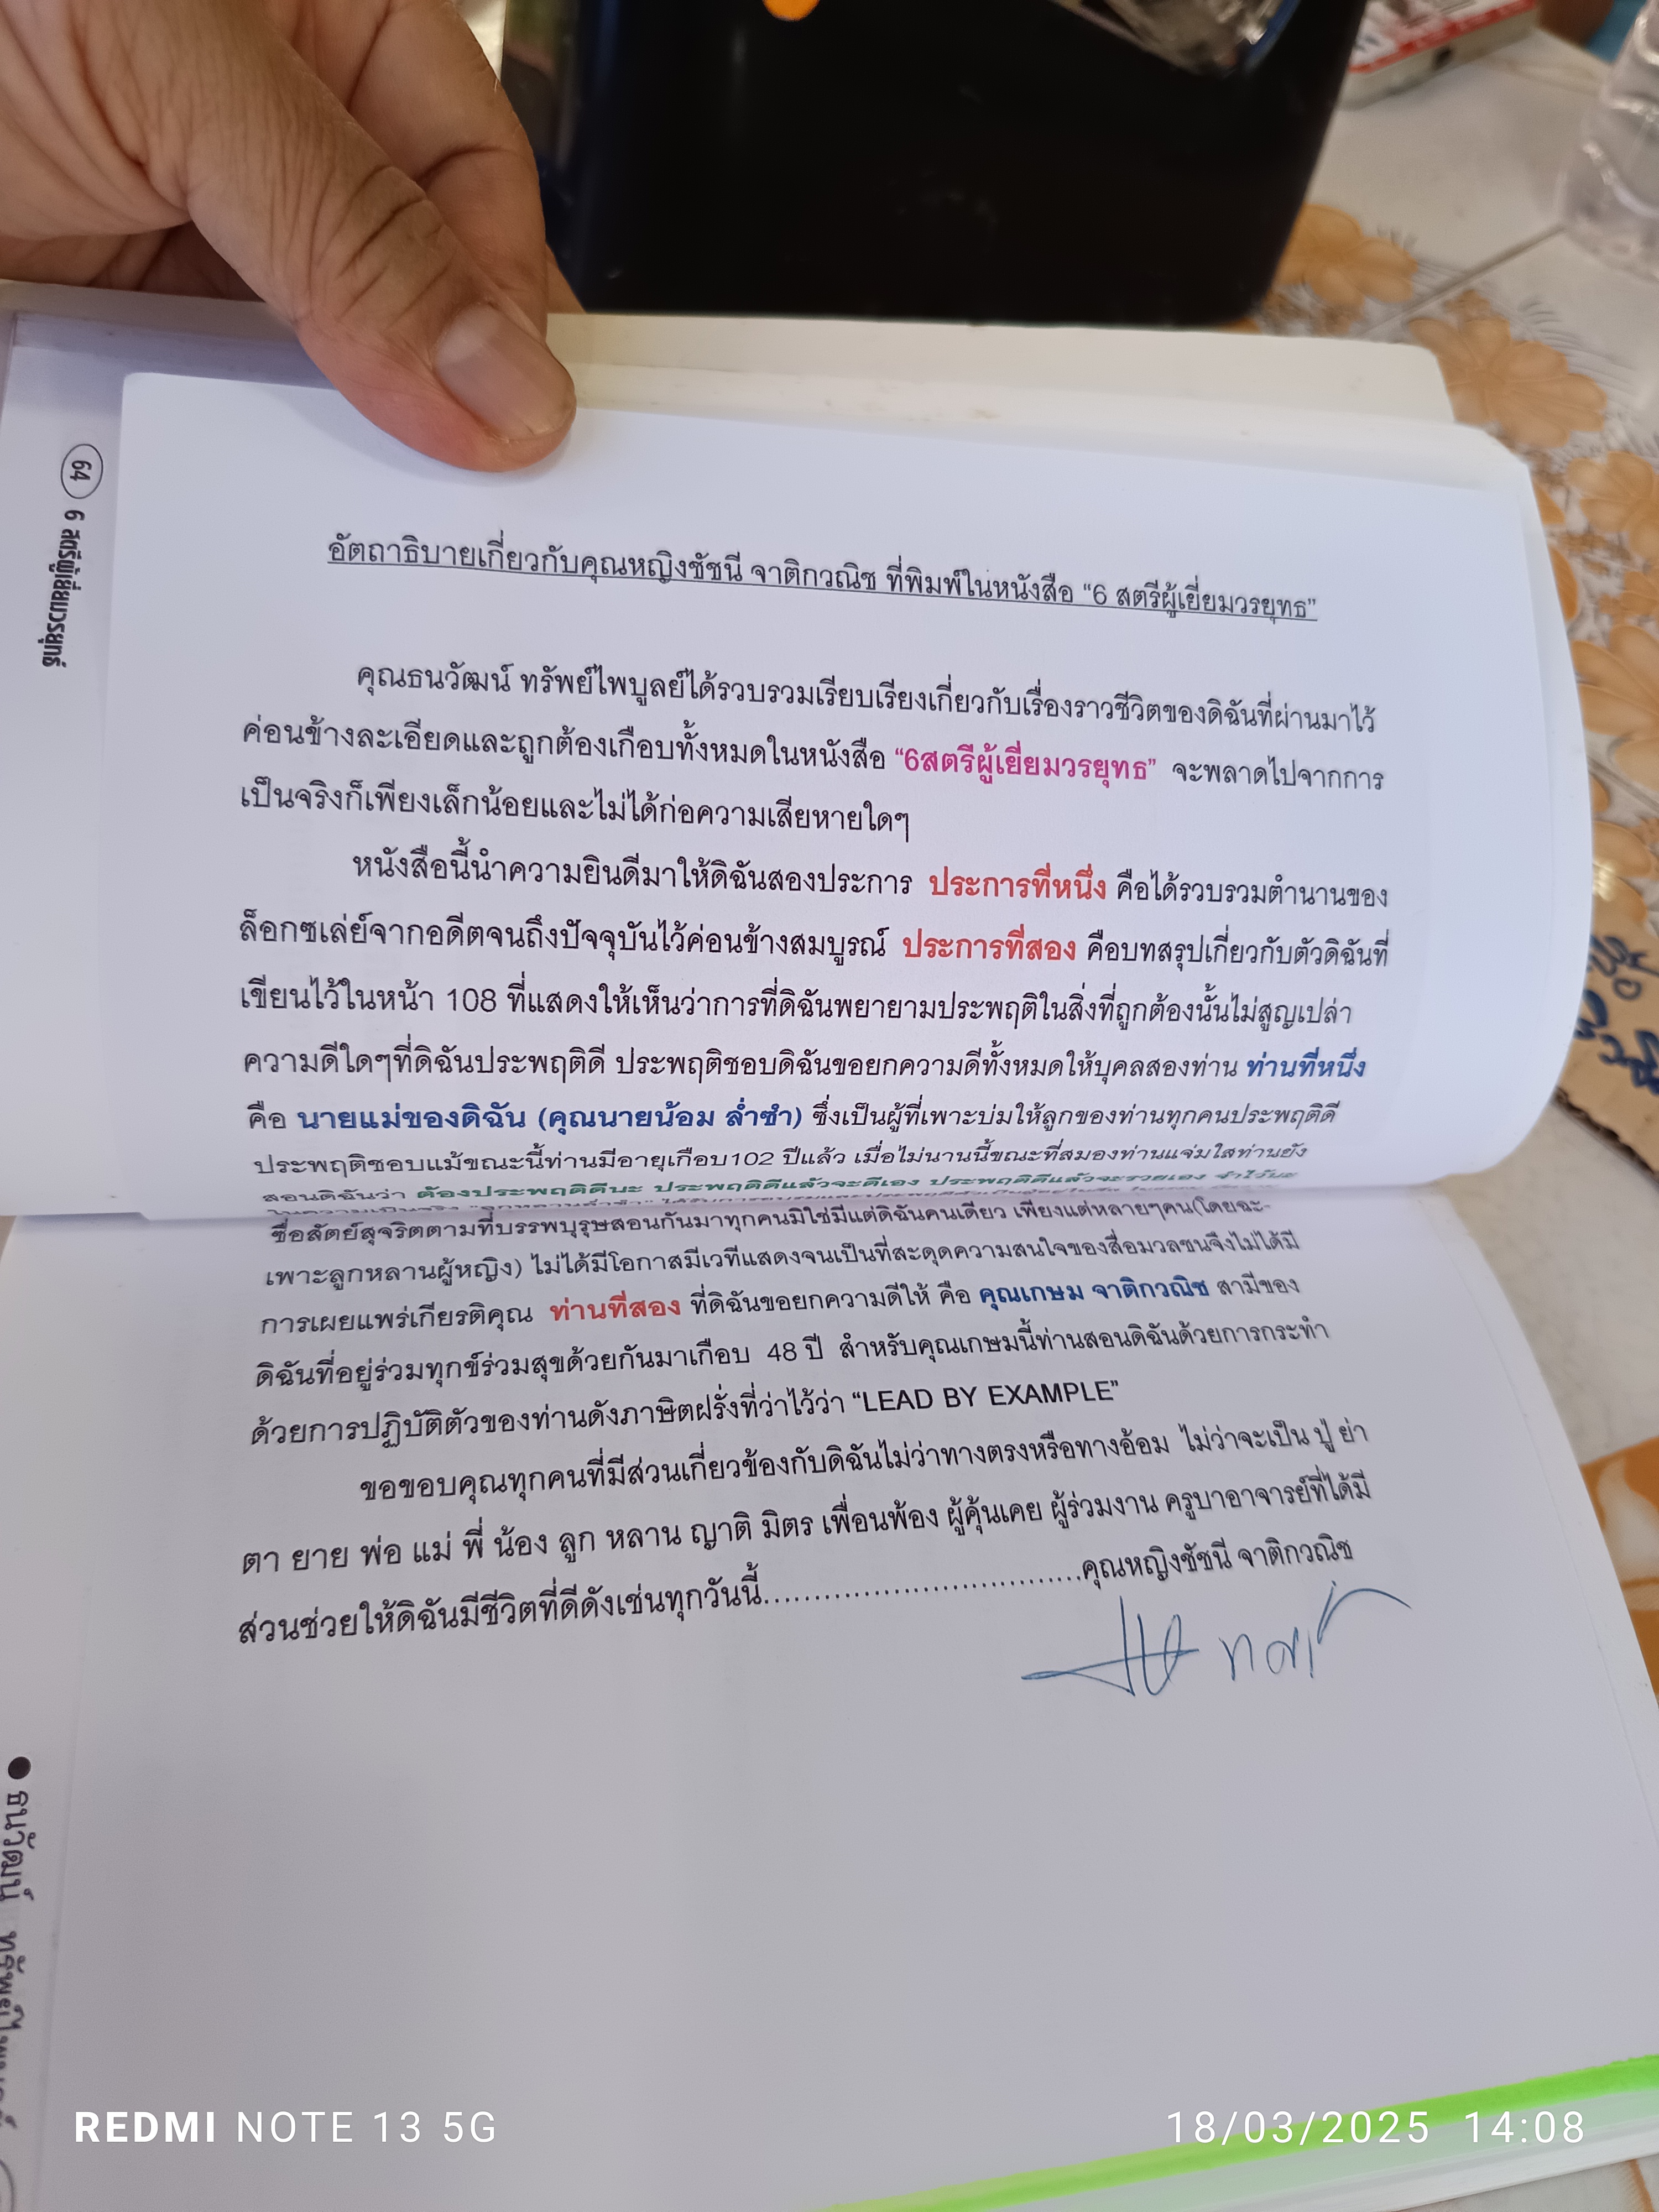 64 6 สตรีผู้เยี่ยมวรยุทธ์
อัตถาธิบายเกี่ยวกับคุณหญิงชัชนี จาติกวณิช ที่พิมพ์ในหนังสือ “6 สตรีผู้เยี่ยมวรยุทธ”
คุณธนวัฒน์ ทรัพย์ไพบูลย์ได้รวบรวมเรียบเรียงเกี่ยวกับเรื่องราวชีวิตของดิฉันที่ผ่านมาไว้
ค่อนข้างละเอียดและถูกต้องเกือบทั้งหมดในหนังสือ “6สตรีผู้เยี่ยมวรยุทธ” จะพลาดไปจากการ
เป็นจริงก็เพียงเล็กน้อยและไม่ได้ก่อความเสียหายใดๆ
หนังสือนี้นำความยินดีมาให้ดิฉันสองประการ ประการที่หนึ่ง คือได้รวบรวมตำนานของ
ล็อกซเล่ย์จากอดีตจนถึงปัจจุบันไว้ค่อนข้างสมบูรณ์ ประการที่สอง คือบทสรุปเกี่ยวกับตัวดิฉันที่
เขียนไว้ในหน้า 108 ที่แสดงให้เห็นว่าการที่ดิฉันพยายามประพฤติในสิ่งที่ถูกต้องนั้นไม่สูญเปล่า
ความดีใดๆที่ดิฉันประพฤติดี ประพฤติชอบดิฉันขอยกความดีทั้งหมดให้บุคลสองท่าน ท่านที่หนึ่ง
คือ นายแม่ของดิฉัน (คุณนายน้อม ล่ำซำ) ซึ่งเป็นผู้ที่เพาะบ่มให้ลูกของท่านทุกคนประพฤติดี
ประพฤติชอบแม้ขณะนี้ท่านมีอายุเกือบ102 ปีแล้ว เมื่อไม่นานนี้ขณะที่สมองท่านแจ่มใสท่านยัง
สอนดิฉันว่า ต้องประพฤติดีนะ ประพฤติดีแล้วจะดีเอง ประพฤติดีแล้วจะรวยเอง จำไว้นะ
ซื่อสัตย์สุจริตตามที่บรรพบุรุษสอนกันมาทุกคนมิใช่มีแต่ดิฉันคนเดียว เพียงแต่หลายๆคน(โดยฉะ-
เพาะลูกหลานผู้หญิง) ไม่ได้มีโอกาสมีเวทีแสดงจนเป็นที่สะดุดความสนใจของสื่อมวลชนจึงไม่ได้มี
การเผยแพร่เกียรติคุณ ท่านที่สอง ที่ดิฉันขอยกความดีให้ คือ คุณเกษม จาติกวณิช สามีของ
ดิฉันที่อยู่ร่วมทุกข์ร่วมสุขด้วยกันมาเกือบ 48 ปี สำหรับคุณเกษมนี้ท่านสอนดิฉันด้วยการกระทำ
ด้วยการปฏิบัติตัวของท่านดังภาษิตฝรั่งที่ว่าไว้ว่า “LEAD BY EXAMPLE”
ขอขอบคุณทุกคนที่มีส่วนเกี่ยวข้องกับดิฉันไม่ว่าทางตรงหรือทางอ้อม ไม่ว่าจะเป็น ปู่ ย่า
ตา ยาย พ่อ แม่ พี่ น้อง ลูก หลาน ญาติ มิตร เพื่อนพ้อง ผู้คุ้นเคย ผู้ร่วมงาน ครูบาอาจารย์ที่ได้มี
ส่วนช่วยให้ดิฉันมีชีวิตที่ดีดังเช่นทุกวันนี้................................คุณหญิงชัชนี จาติกวณิช
● ธนวัฒน์ ทรัพย์ไพบูลย์
REDMI NOTE 13 5G
18/03/2025 14:08